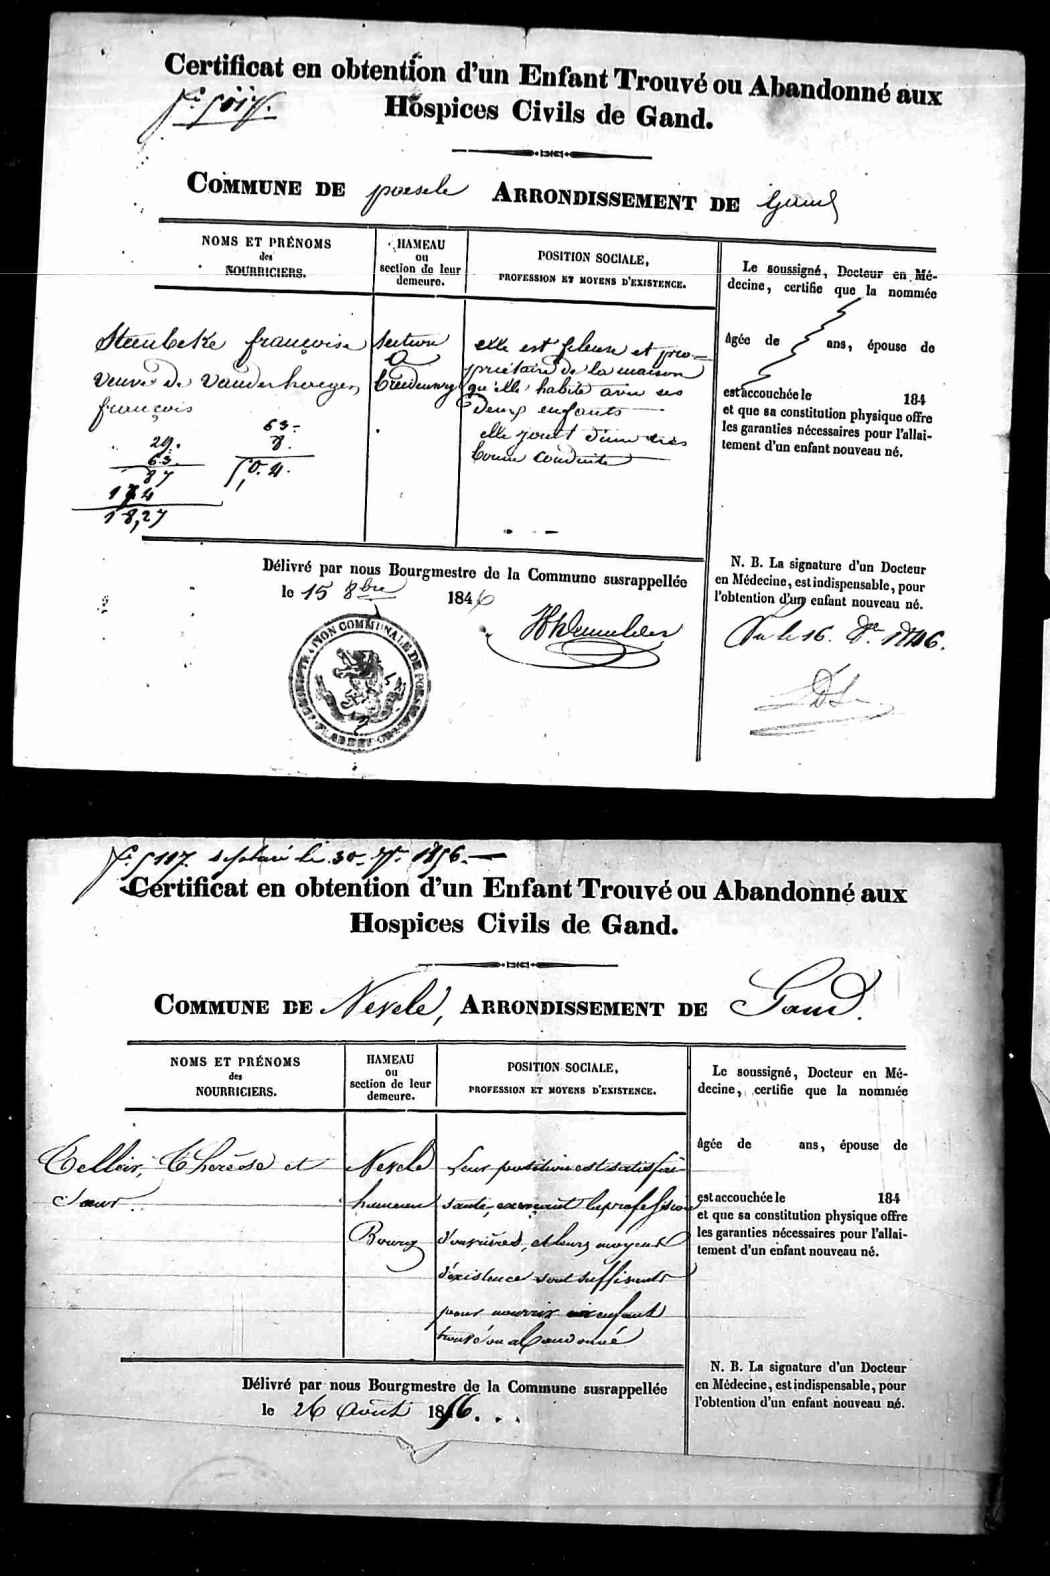 Certificat en obtention d'un Enfant Trouvé ou Abandonné aux
Hospices Civils de Gand.
COMMUNE DE poesele ARRONDISSEMENT DE Gand
NOMS ET PRÉNOMS
des
NOURRICIERS.
HAMEAU
ou
section de leur
demeure.
POSITION SOCIALE,
PROFESSION ET MOYENS D'EXISTENCE.
Steenbeke françoise
veuve de Vanderhaegen
françois
63-
29. 8.
63. 5,0.4.
87
174
18,27
section
A
elle est fileuse et pro-
priétaire de la maison
qu'elle habite avec ses
deux enfants
elle jouit d'une très
bonne conduite
Le soussigné, Docteur en Mé-
decine, certifie que la nommée
âgée de ans, épouse de
est accouchée le 184
et que sa constitution physique offre
les garanties nécessaires pour l'allai-
tement d'un enfant nouveau né.
N. B. La signature d'un Docteur
en Médecine, est indispensable, pour
l'obtention d'un enfant nouveau né.
Délivré par nous Bourgmestre de la Commune susrappellée
le 15 8bre 1846
ADMINISTRATION COMMUNALE DE POESELE
Vu le 16. 8re 1846.
5107. déplacé le 30 1856.
Certificat en obtention d'un Enfant Trouvé ou Abandonné aux
Hospices Civils de Gand.
COMMUNE DE Nevele, ARRONDISSEMENT DE Gand.
NOMS ET PRÉNOMS
des
NOURRICIERS.
HAMEAU
ou
section de leur
demeure.
POSITION SOCIALE,
PROFESSION ET MOYENS D'EXISTENCE.
Thérèse et
Soeur.
Nevele
hameau
Bourg
Leur position est satisfai-
sante, exerçant la profession
d'ouvrières, et leurs moyens
d'existence sont suffisants
pour nourrir un enfant
trouvé ou abandonné
Le soussigné, Docteur en Mé-
decine, certifie que la nommée
âgée de ans, épouse de
est accouchée le 184
et que sa constitution physique offre
les garanties nécessaires pour l'allai-
tement d'un enfant nouveau né.
N. B. La signature d'un Docteur
en Médecine, est indispensable, pour
l'obtention d'un enfant nouveau né.
Délivré par nous Bourgmestre de la Commune susrappellée
le 26 Août 1856.